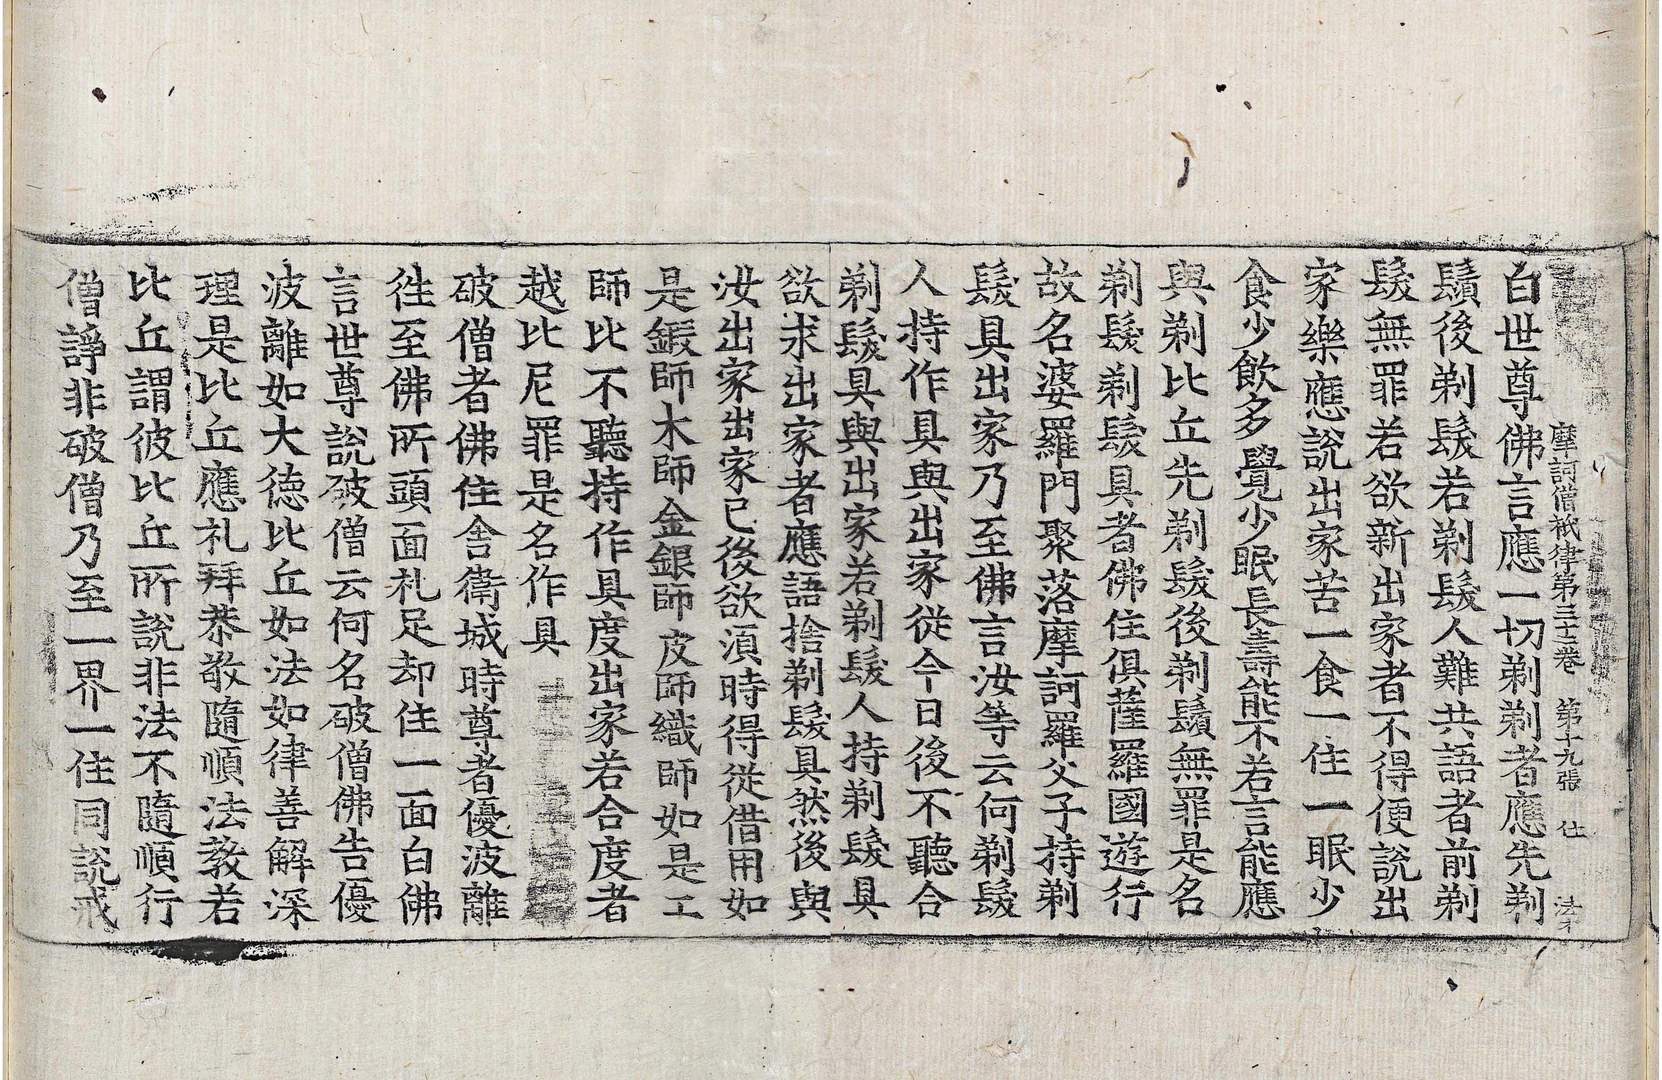 摩訶僧祇律第三十二卷 第十九張 仕
白世尊佛言應一切剃剃者應先剃
鬚後剃髮若剃髮人難共語者前剃
髮無罪若欲新出家者不得便說出
家樂應說出家苦一食一住一眠少
食少飲多覺少眠長壽能不若言能應
與剃比丘先剃髮後剃鬚無罪是名
剃髮剃髮具者佛住俱薩羅國遊行
故名婆羅門聚落摩訶羅父子持剃
髮具出家乃至佛言汝等云何剃髮
人持作具與出家從今日後不聽合
剃髮具與出家若剃髮人持剃髮具
欲求出家者應語捨剃髮具然後與
汝出家出家已後欲湏時得從借用如
是鍛師木師金銀師皮師織師如是工
師比不聽持作具度出家若合度者
越比尼罪是名作具
破僧者佛住舍衛城時尊者優波離
徃至佛所頭面礼足却住一面白佛
言世尊說破僧云何名破僧佛告優
波離如大德比丘如法如律善解深
理是比丘應礼拜恭敬隨順法教若
比丘謂彼比丘所說非法不隨順行
僧諍非破僧乃至一界一住同說戒